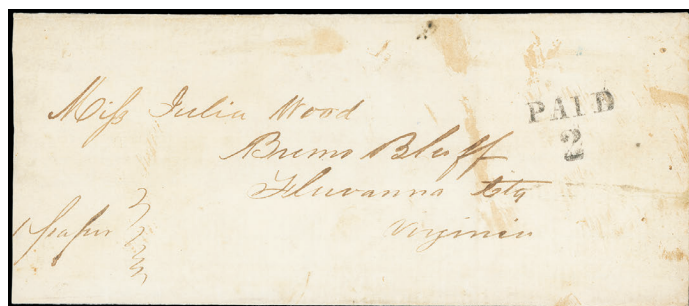 Miss Julia Wood
PAID
2
Bremo Bluff
Fluvanna Cty
Virginia
1 paper